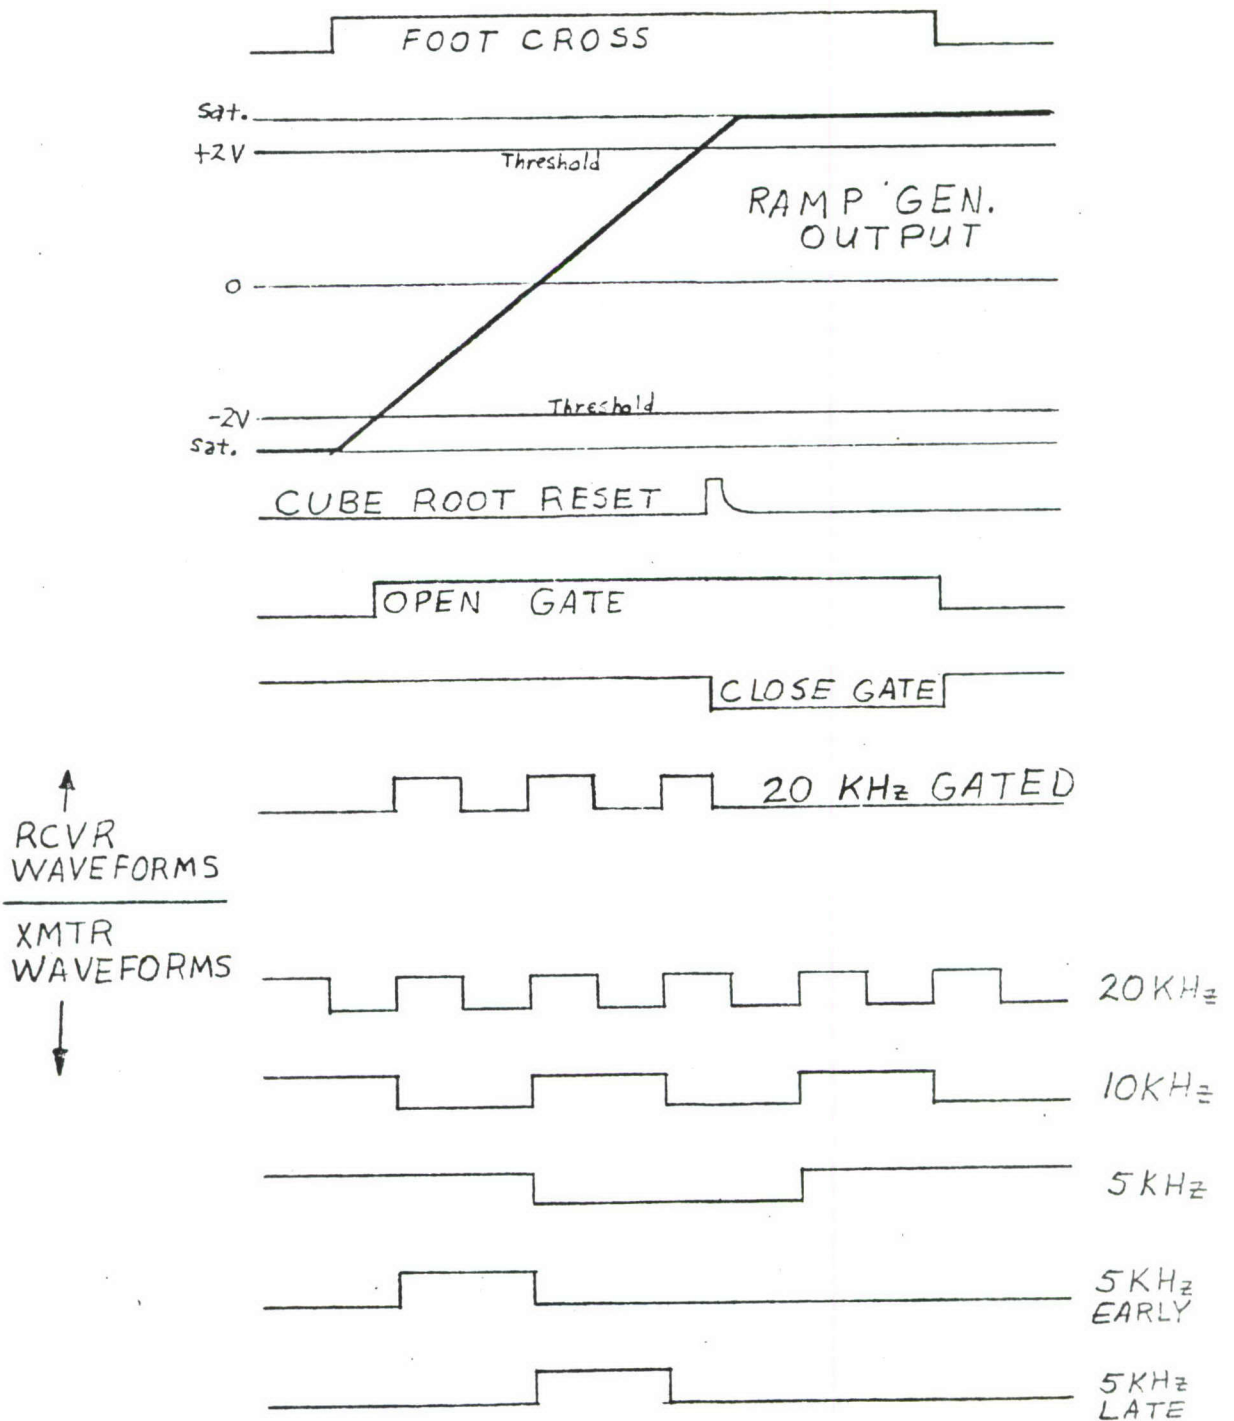 FOOT CROSS
sat.
+2V
Threshold
RAMP GEN.
OUTPUT
0
Threshold
-2V
sat.
CUBE ROOT RESET
OPEN GATE
CLOSE GATE
20 KHz GATED
RCVR
WAVEFORMS
XMTR
WAVEFORMS
20KHz
10KHz
5KHz
5KHz
EARLY
5KHz
LATE